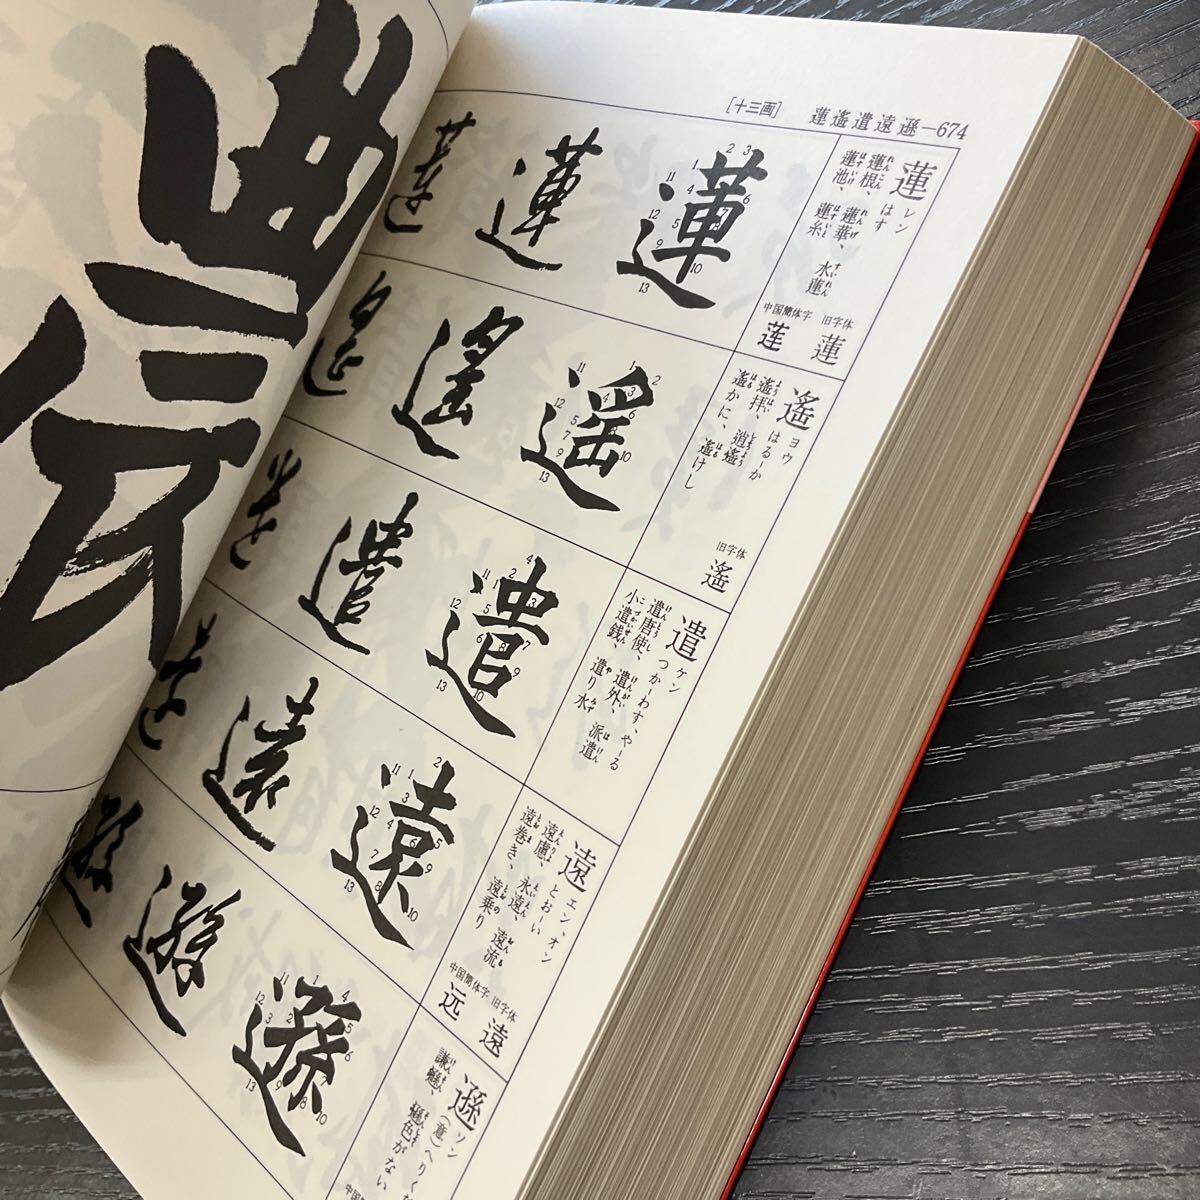 [十三画] 蓮遙遣遠遜—674
蓮 レン
はす
蓮根、蓮華、水蓮
蓮池、蓮糸
中国簡体字 旧字体
莲 蓮
遙 ヨウ
はる－か
遙拝、逍遙
遙かに、遙けし
旧字体
遙
遣 ケン
つか－わす、や－る
遣唐使、遣外、派遣
小遣銭、遣り水
遠 エン、オン
とお－い
遠慮、永遠、遠流
遠巻き、遠乗り
中国簡体字 旧字体
远 遠
遜 ソン
(意)へりくだ
謙遜、遜色がない
中国簡体字